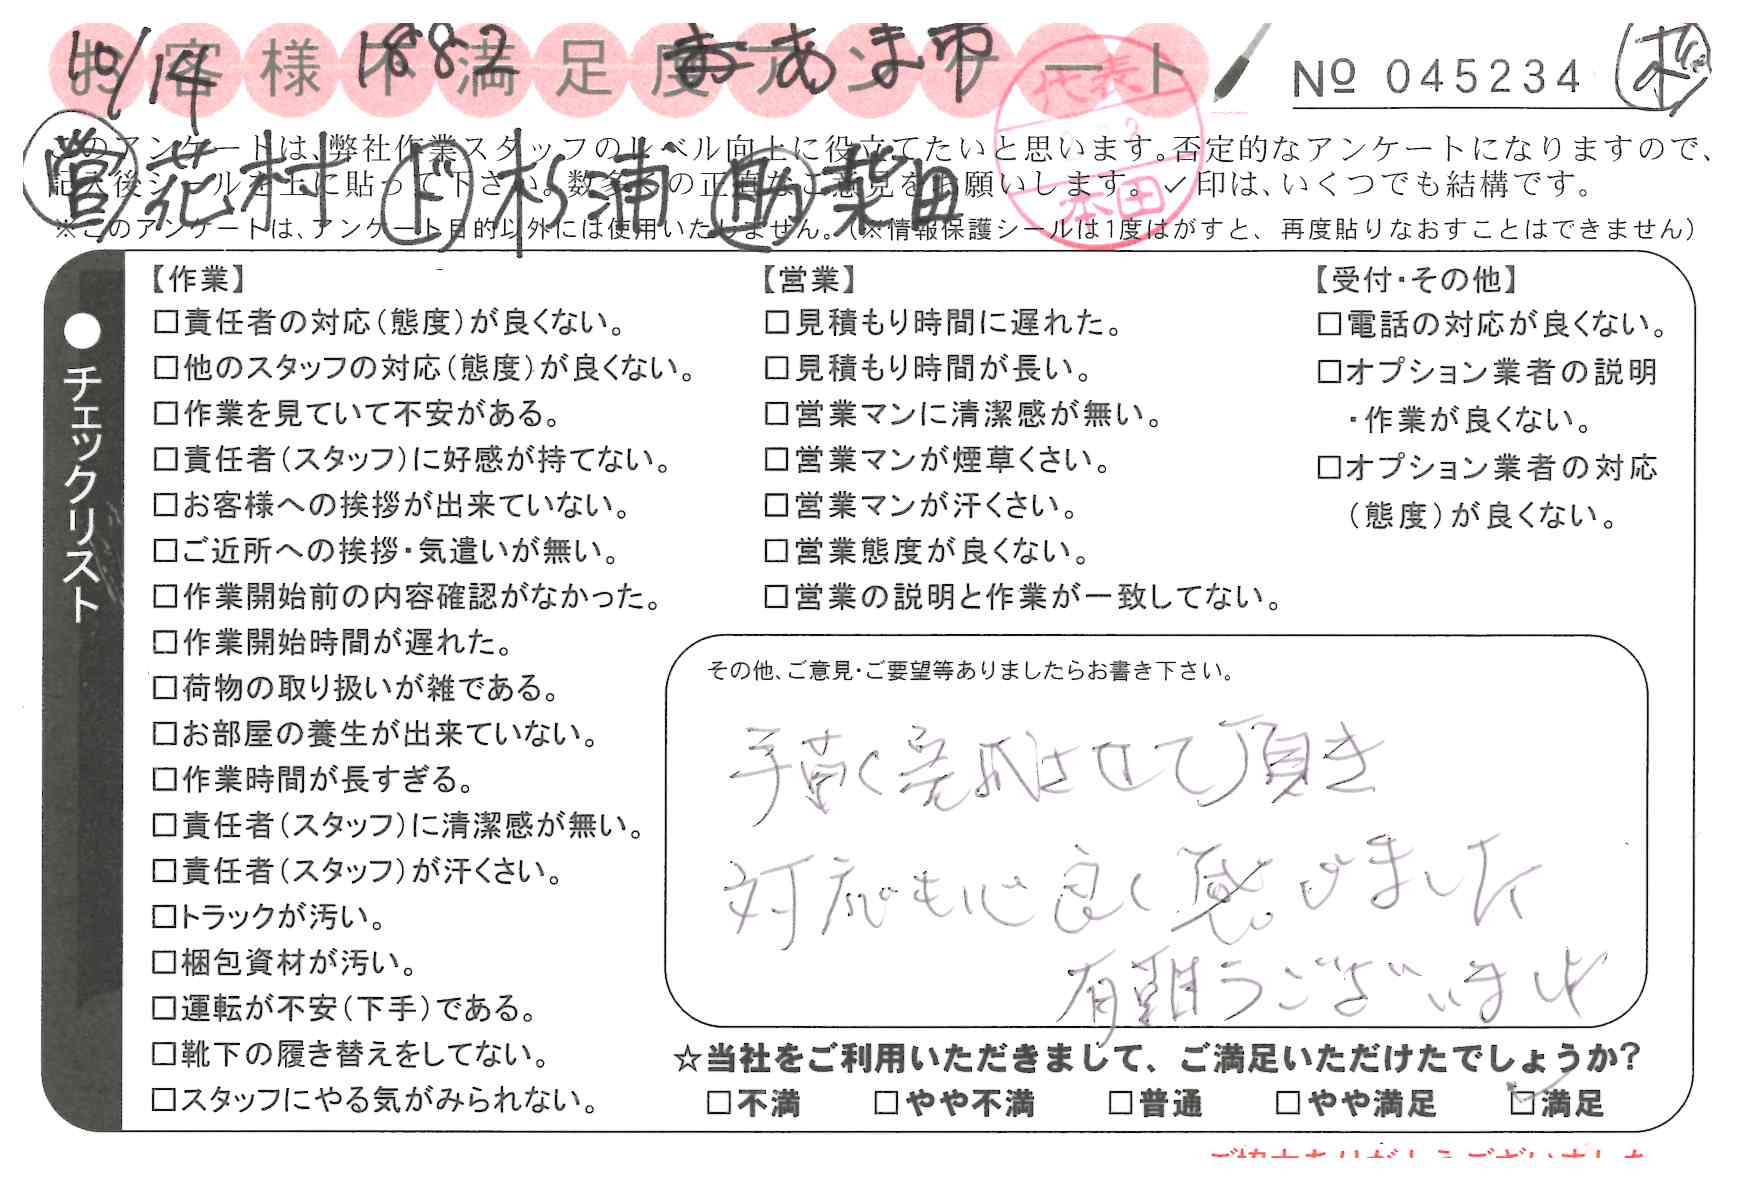 お客様不満足度アンケート
10/14 1882 あま市
№ 045234
代表
本田
このアンケートは、弊社作業スタッフのレベル向上に役立てたいと思います。否定的なアンケートになりますので、
記入後シールを上に貼って下さい。数多くの正直なご意見をお願いします。✓印は、いくつでも結構です。
営 花村 ド 杉浦 助 柴田
※このアンケートは、アンケート目的以外には使用いたしません。(※情報保護シールは1度はがすと、再度貼りなおすことはできません)
●チェックリスト
【作業】
□責任者の対応(態度)が良くない。
□他のスタッフの対応(態度)が良くない。
□作業を見ていて不安がある。
□責任者(スタッフ)に好感が持てない。
□お客様への挨拶が出来ていない。
□ご近所への挨拶・気遣いが無い。
□作業開始前の内容確認がなかった。
□作業開始時間が遅れた。
□荷物の取り扱いが雑である。
□お部屋の養生が出来ていない。
□作業時間が長すぎる。
□責任者(スタッフ)に清潔感が無い。
□責任者(スタッフ)が汗くさい。
□トラックが汚い。
□梱包資材が汚い。
□運転が不安(下手)である。
□靴下の履き替えをしてない。
□スタッフにやる気がみられない。
【営業】
□見積もり時間に遅れた。
□見積もり時間が長い。
□営業マンに清潔感が無い。
□営業マンが煙草くさい。
□営業マンが汗くさい。
□営業態度が良くない。
□営業の説明と作業が一致してない。
【受付・その他】
□電話の対応が良くない。
□オプション業者の説明
・作業が良くない。
□オプション業者の対応
(態度)が良くない。
その他、ご意見・ご要望等ありましたらお書き下さい。
手早く完成させて頂き
対応も心良く感じました
有難うございます
☆当社をご利用いただきまして、ご満足いただけたでしょうか?
□不満 □やや不満 □普通 □やや満足 ☑満足
ご協力ありがとうございました